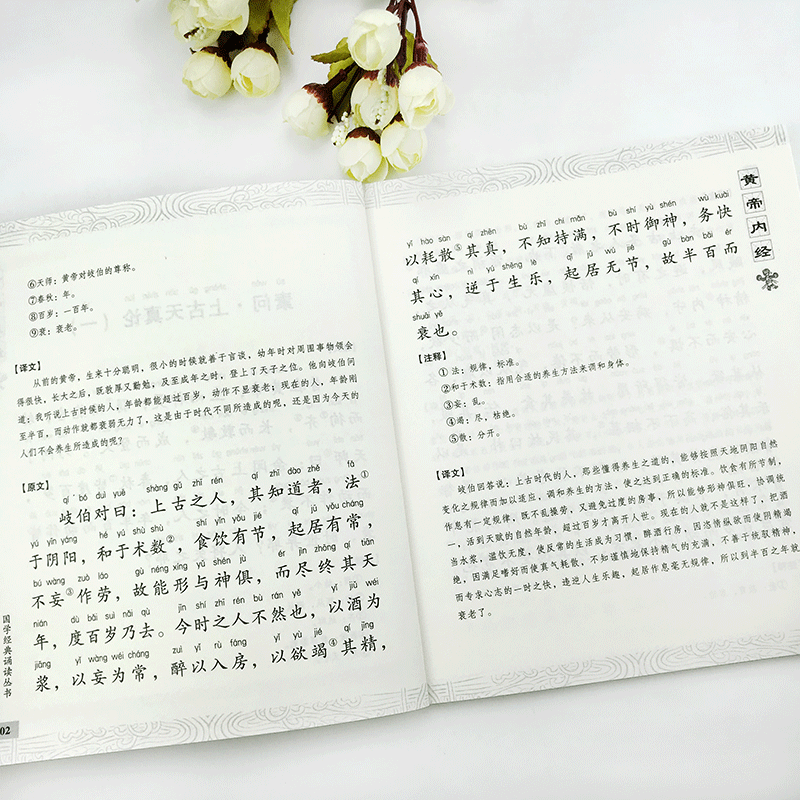 ⑥天师：黄帝对岐伯的尊称。
⑦春秋：年。
⑧百岁：一百年。
⑨衰：衰老。
【译文】
从前的黄帝，生来十分聪明，很小的时候就善于言谈，幼年时对周围事物领会
得很快，长大之后，既敦厚又勤勉，及至成年之时，登上了天子之位。他向岐伯问
道：我听说上古时候的人，年龄都能超过百岁，动作不显衰老；现在的人，年龄刚
至半百，而动作就都衰弱无力了，这是由于时代不同所造成的呢，还是因为今天的
人们不会养生所造成的呢？
【原文】
qí bó duì yuē shàng gǔ zhī rén qí zhī dào zhě fǎ
岐伯对曰：上古之人，其知道者，法①
yú yīn yáng hé yú shù shù shí yǐn yǒu jié qǐ jū yǒu cháng
于阴阳，和于术数②，食饮有节，起居有常，
bú wàng zuò láo gù néng xíng yǔ shén jù ér jìn zhōng qí tiān
不妄③作劳，故能形与神俱，而尽终其天
nián dù bǎi suì nǎi qù jīn shí zhī rén bù rán yě yǐ jiǔ wéi
年，度百岁乃去。今时之人不然也，以酒为
jiāng yǐ wàng wéi cháng zuì yǐ rù fáng yǐ yù jié qí jīng
浆，以妄为常，醉以入房，以欲竭④其精，
国学经典诵读丛书
02
黄帝内经
yǐ hào sàn qí zhēn bù zhī chí mǎn bù shí yù shén wù kuài
以耗散⑤其真，不知持满，不时御神，务快
qí xīn nì yú shēng lè qǐ jū wú jié gù bàn bǎi ér
其心，逆于生乐，起居无节，故半百而
shuāi yě
衰也。
【注释】
①法：规律，标准。
②和于术数：指用合适的养生方法来调和身体。
③妄：乱。
④竭：尽，枯绝。
⑤散：分开。
【译文】
岐伯回答说：上古时代的人，那些懂得养生之道的，能够按照天地阴阳自然
变化之规律而加以适应，调和养生的方法，使之达到正确的标准。饮食有所节制，
作息有一定规律，既不乱操劳，又避免过度的房事，所以能够形神俱旺，协调统
一，活到天赋的自然年龄，超过百岁才离开人世。现在的人就不是这样了，把酒
当水浆，滥饮无度，使反常的生活成为习惯，醉酒行房，因恣情纵欲而使阴精竭
绝，因满足嗜好而使真气耗散，不知谨慎地保持精气的充满，不善于统驭精神，
而专求心志的一时之快，违逆人生乐趣，起居作息毫无规律，所以到半百之年就
衰老了。